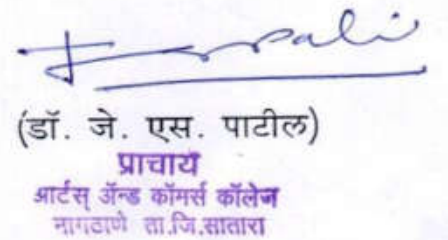 (डॉ. जे. एस. पाटील)
प्राचार्य
आर्टस् ॲन्ड कॉमर्स कॉलेज
नागठाणे ता.जि.सातारा